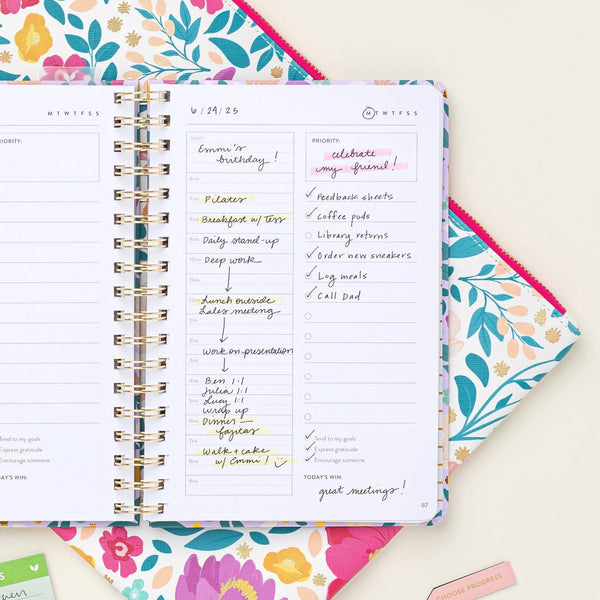 M T W T F S S
IORITY:
Tend to my goals
Express gratitude
Encourage someone
TODAY'S WIN:
6/24/25
M T W T F S S
TODAY
Emmi's
birthday!
6AM
7AM Pilates
8AM Breakfast w/ Tess
9AM Daily stand-up
10AM Deep work
12PM Lunch outside
Sales meeting
1PM
2PM
3PM Work on presentation
4PM
Ben 1:1
Julia 1:1
5PM Lucy 1:1
Wrap up
6PM Dinner —
fajitas
7PM
Walk + cake
8PM w/ Emmi!
9PM
PRIORITY:
celebrate
my friend!
Feedback sheets
Coffee pods
Library returns
Order new sneakers
Log meals
Call Dad
Tend to my goals
Express gratitude
Encourage someone
TODAY'S WIN:
great meetings!
87
CHOOSE PROGRESS